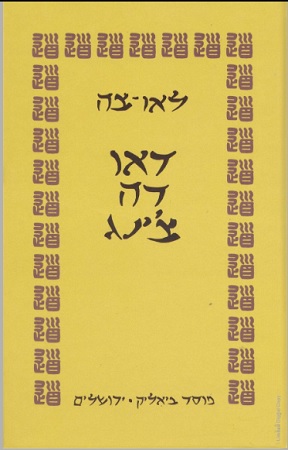 לאו-צה
דאו
דה
צ'ינג
מוסד ביאליק • ירושלים